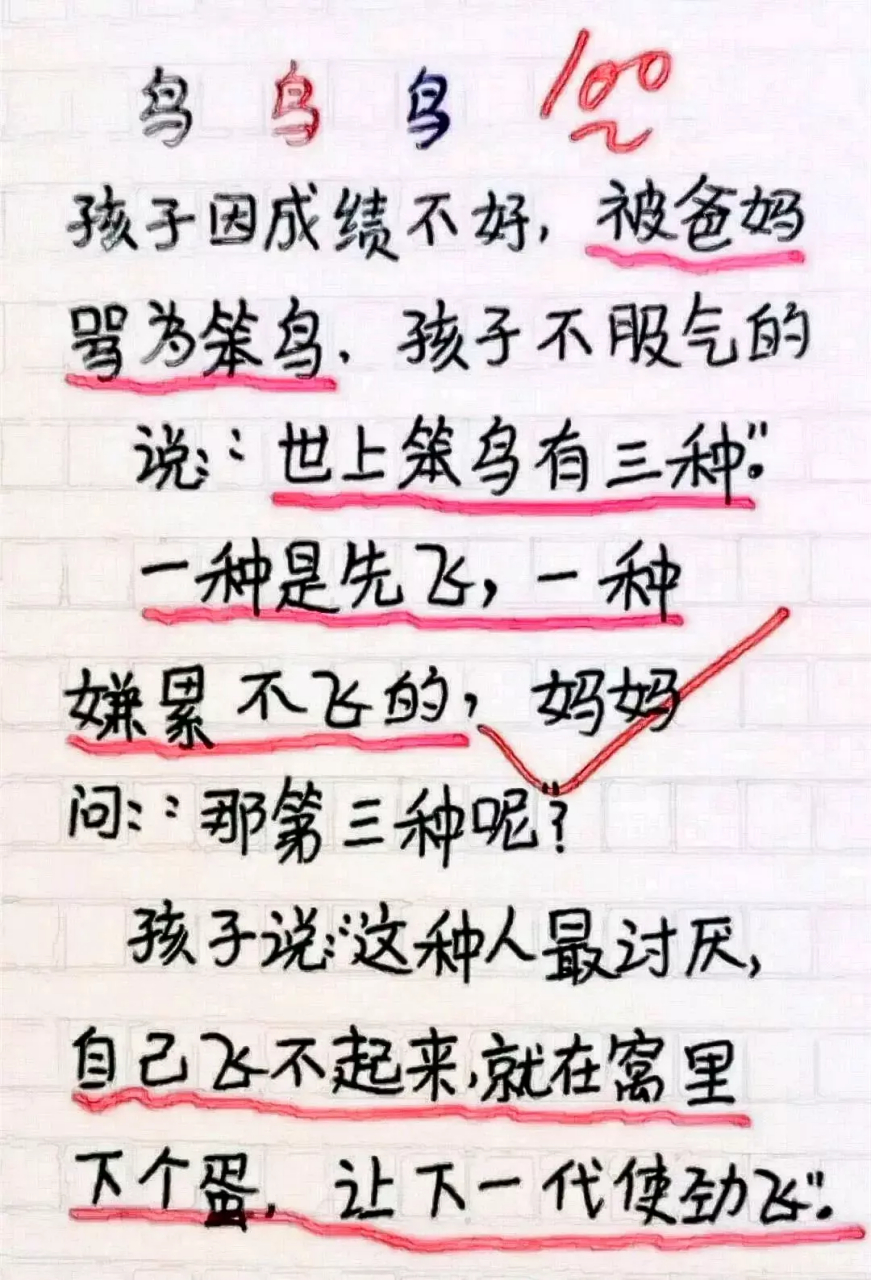 鸟 鸟 鸟 100
孩子因成绩不好,被爸妈
骂为笨鸟、孩子不服气的
说:“世上笨鸟有三种”。
一种是先飞,一种
嫌累不飞的,妈妈
问:“那第三种呢”?
孩子说:“这种人最讨厌,
自己飞不起来,就在窝里
下个蛋,让下一代使劲飞”。